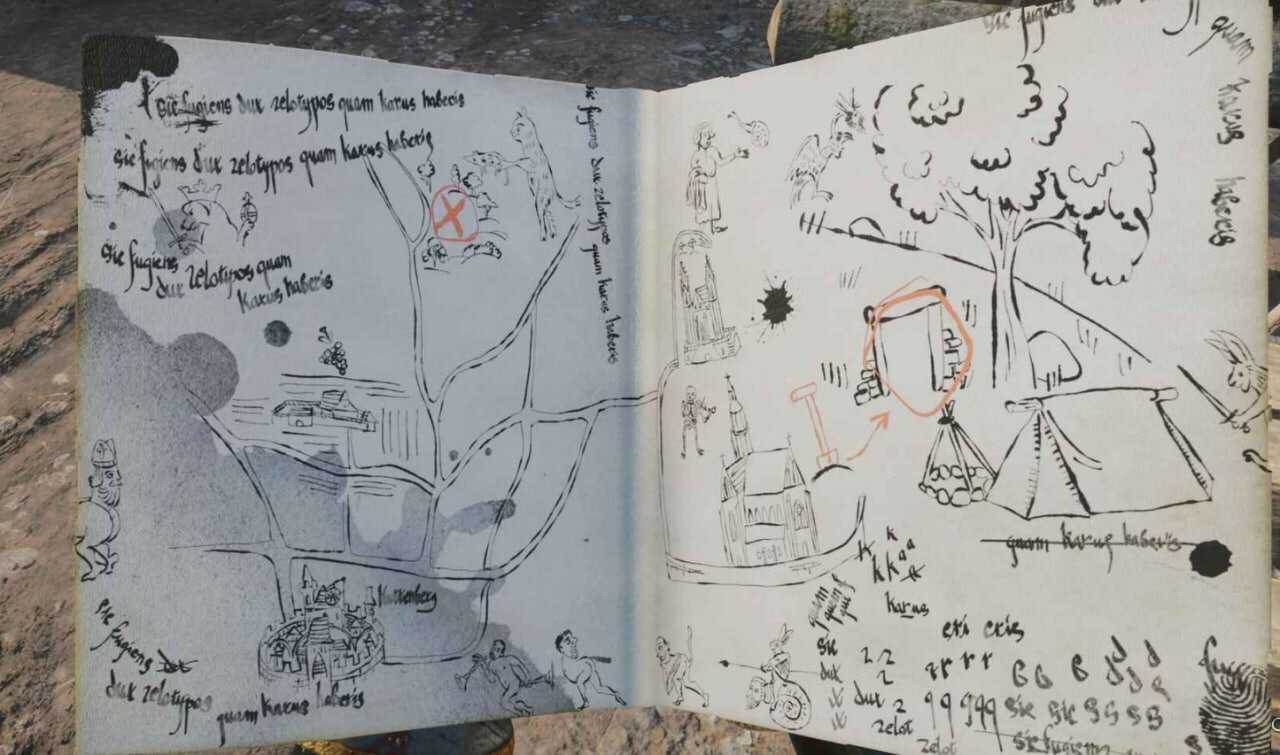 sic fugiens dux zelotypos quam karus haberis
sic fugiens dux zelotypos quam karus haberis
sic fugiens
dux zelotypos quam
karus haberis
sic fugiens dux zelotypos quam karus haberis
Kuttenberg
sic fugiens dux
dux zelotypos
quam karus haberis
sic fugiens
quam karus haberis
quam karus haberis
k k
k k a a
karus
quam
quam
exi exis
sic
dux
dux z
zelot
zelot
q q q q q sic sic
sic fugiens